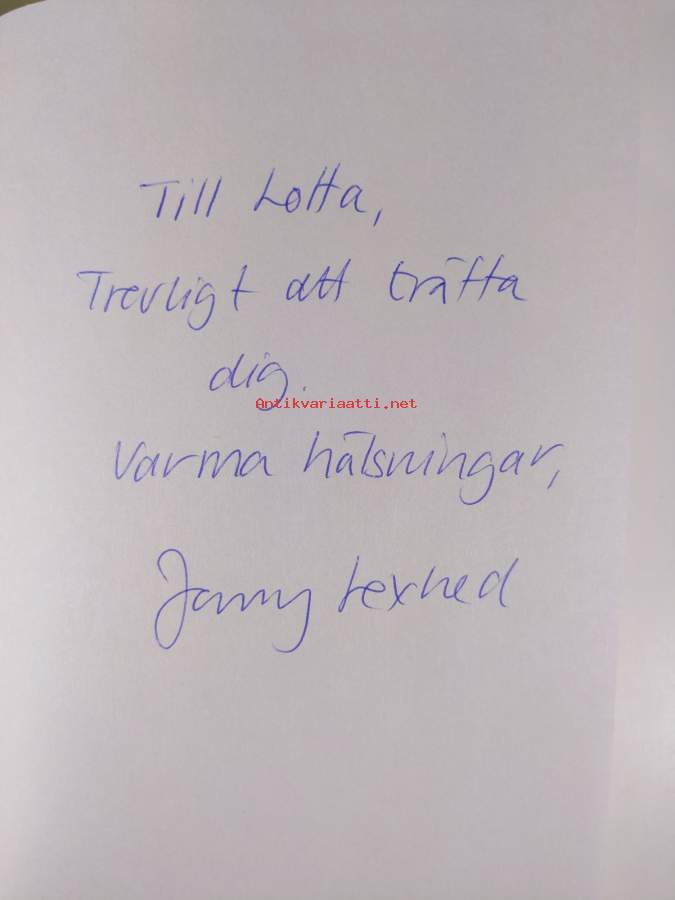 Till Lotta,
Trevligt att träffa
dig.
Antikvariaatti.net
Varma hälsningar,
Jenny Lexhed